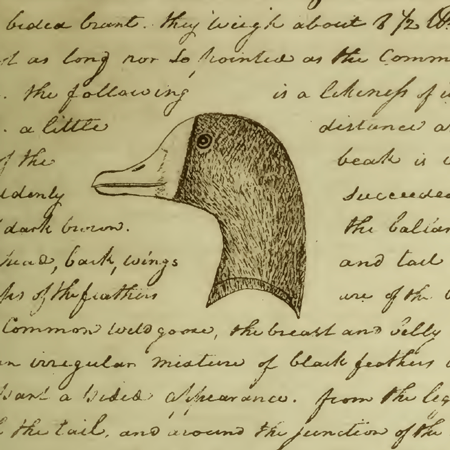 bided brant. they weigh about 8 1/2 lbs
as long nor so pointed as the Comm
. the following is a likeness of
. a little distance a
of the beak is
ddenly succeeded
dark brown. the balian
head, back, wings and tail
ps of the feathers are of the
Common wild goose, the breast and belly
an irregular mixture of black feathers
a bided appearance. from the leg
the tail. and around the junction of the